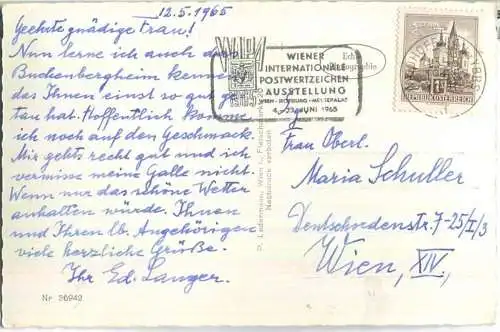 12.5.1965
Geehrte gnädige Frau!
Nun lerne ich auch das
Buchenbergheim kennen
das Ihnen einst so gut ge-
tan hat. Hoffentlich komme
ich noch auf den Geschmack.
Mir gehts recht gut und ich
vermisse meine Galle nicht.
Wenn nur das schöne Wetter
anhalten würde. Ihnen
und Ihren lb. Angehörigen
viele herzliche Grüße.
Ihr Ed. Langer.
Nr 26942
P. Ledermann, Wien I., Fleischmarkt
Nachdruck verboten
WIEN
WIENER
INTERNATIONALE
POSTWERTZEICHEN
AUSSTELLUNG
WIEN - HOFBURG - MESSEPALAST
4.- JUNI 1965
Echte
REPUBLIK ÖSTERREICH
Frau Oberl.
Maria Schuller
Deutschordenstr. 7-25/I/3
Wien, XIV,